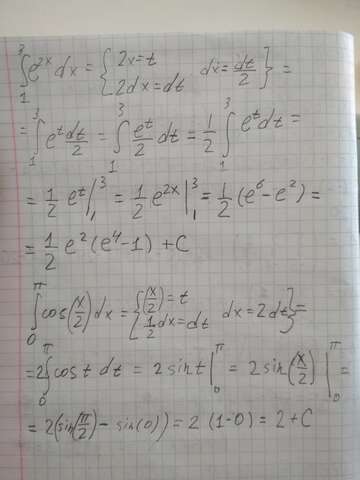 ∫₁³ e^{2x} dx = { 2x = t, 2dx = dt   dx = dt/2 } =
= ∫₁³ e^t dt/2 = ∫₁³ e^t/2 dt = 1/2 ∫₁³ e^t dt =
= 1/2 e^t |₁³ = 1/2 e^{2x} |₁³ = 1/2 (e⁶ - e²) =
= 1/2 e² (e⁴ - 1) + C
∫₀^π cos(x/2) dx = { (x/2) = t, 1/2 dx = dt   dx = 2dt } =
= 2∫₀^π cos t dt = 2 sin t |₀^π = 2 sin(x/2) |₀^π =
= 2(sin(π/2) - sin(0)) = 2 (1-0) = 2 + C